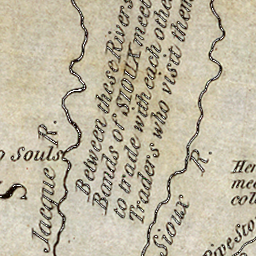 Between these Rivers
Bands of SIOUX meet
to trade with each other
Traders who visit them
o souls
S
Jacque R.
Sioux R.
Her
mee
coll